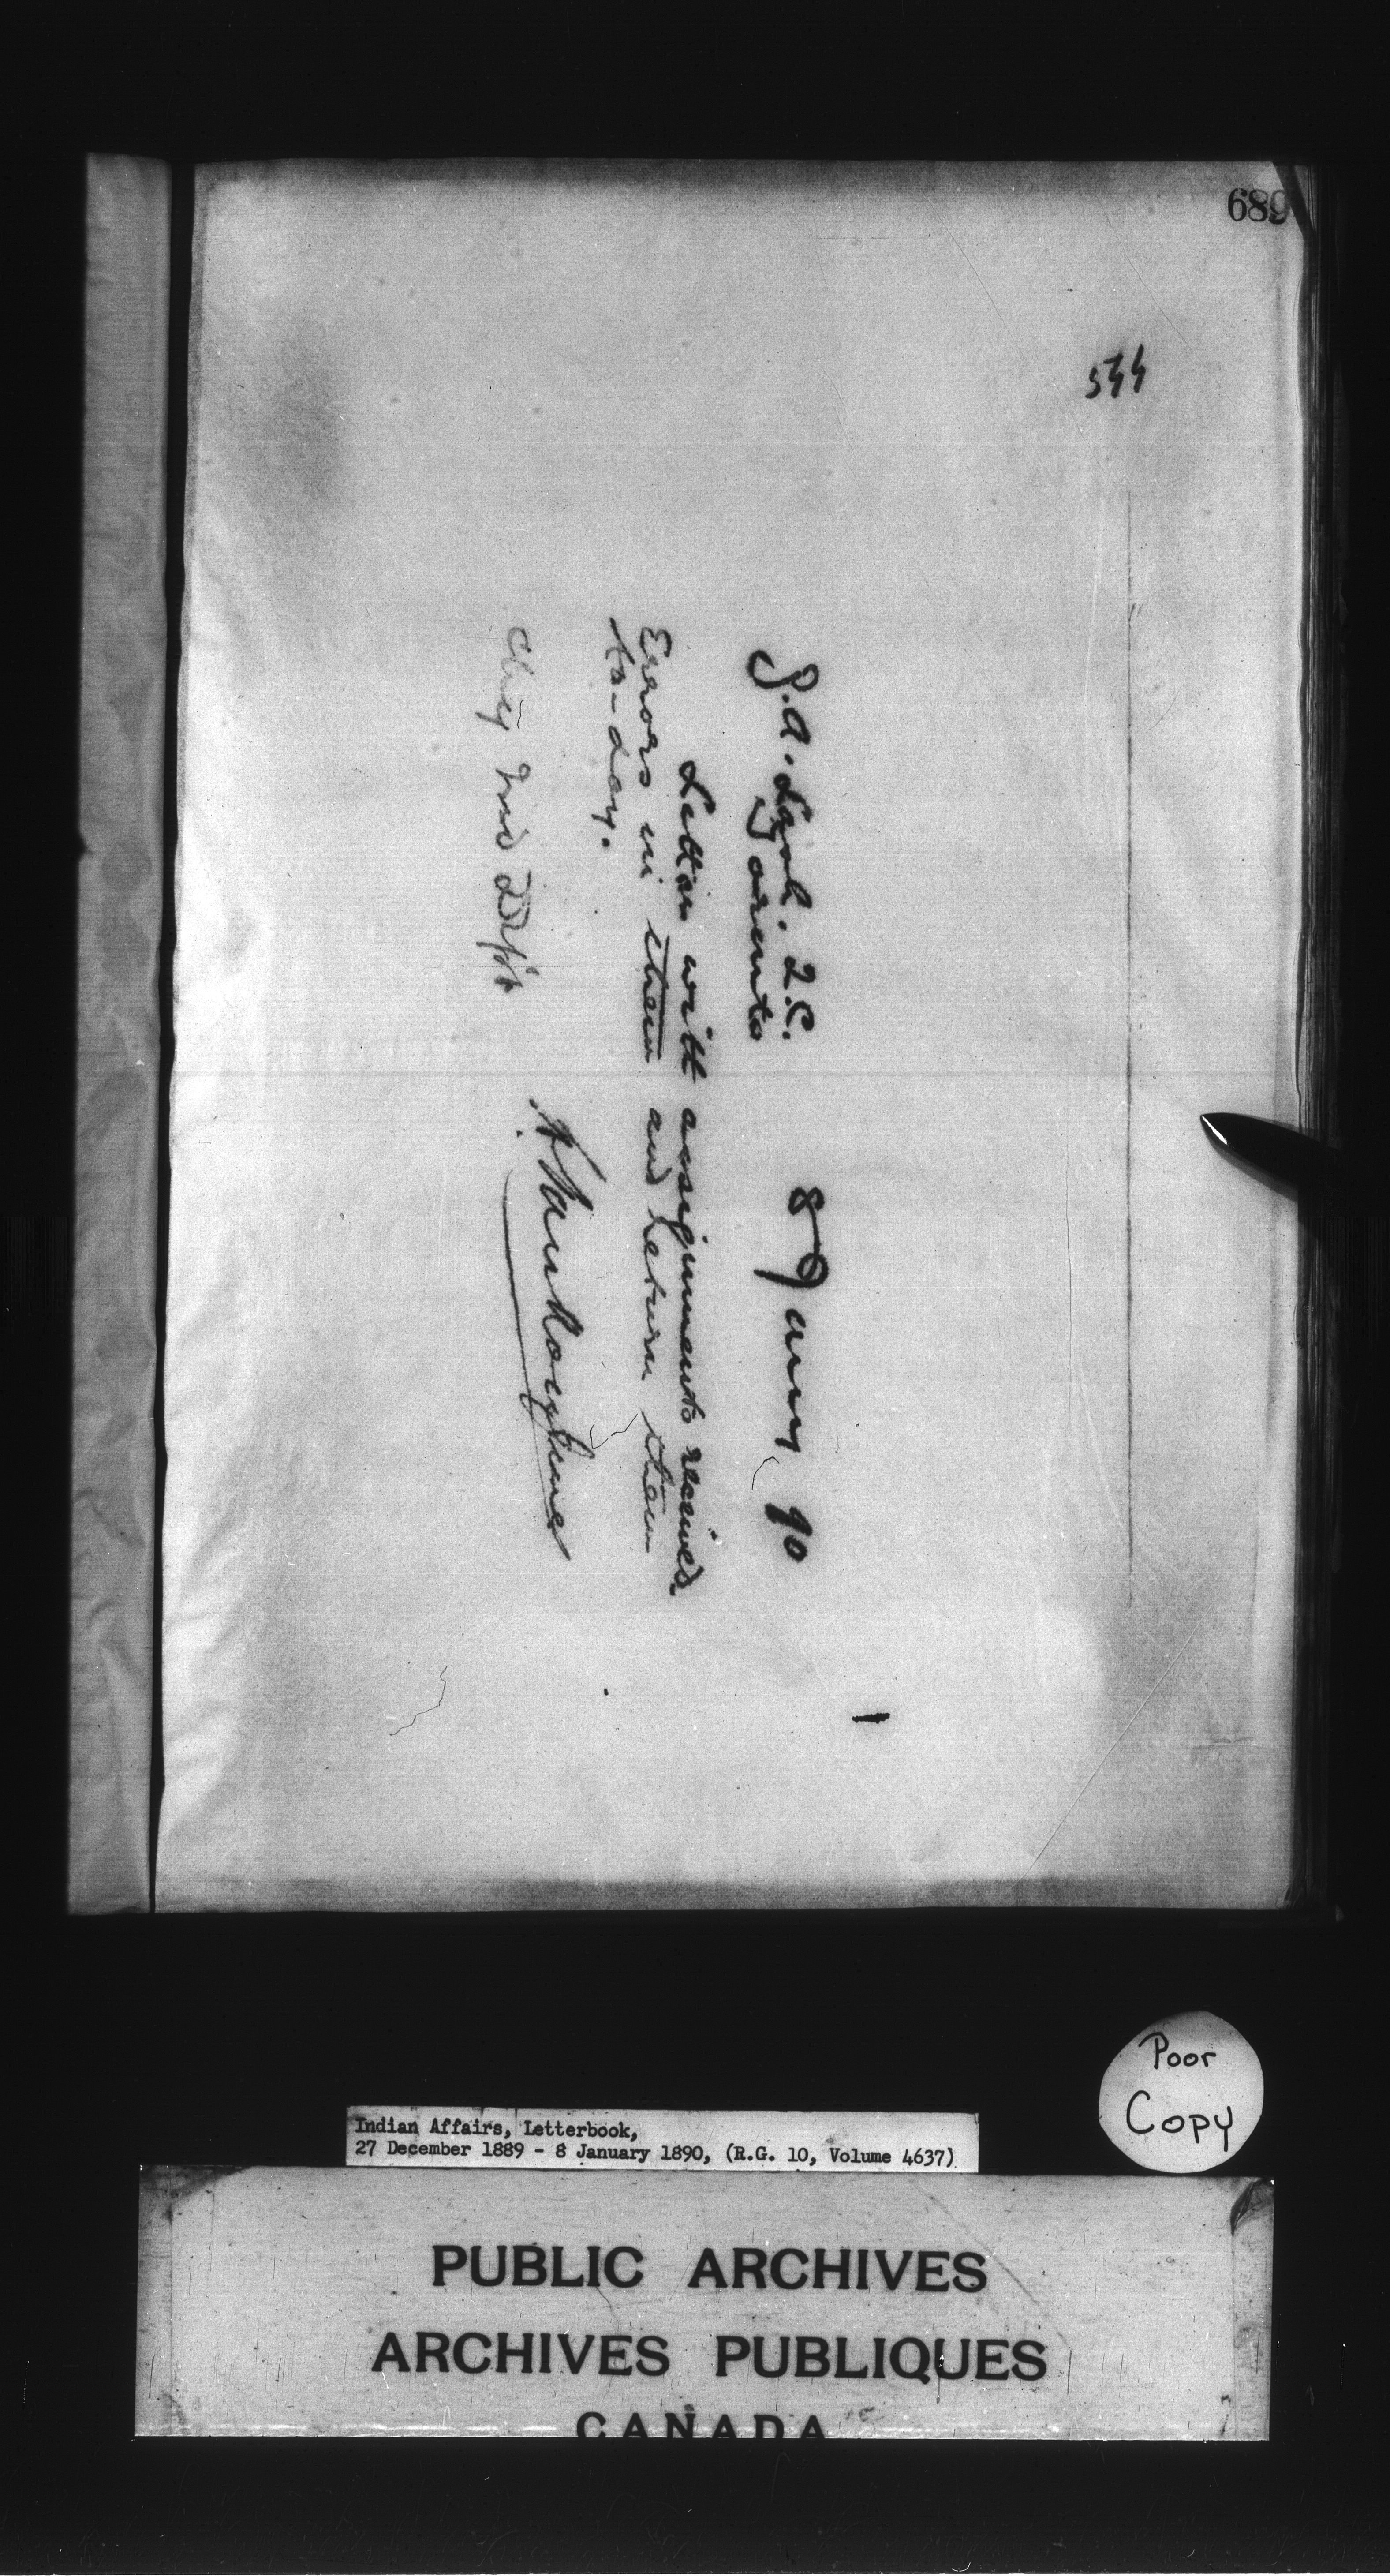 689
544
8 Jany 90
Z.A. Lash. Q.C.
Toronto
Letter with assignments received.
Errors in them and return them
to-day.
L Vankoughnet
Chg Ind Dept
Poor
Copy
Indian Affairs, Letterbook,
27 December 1889 - 8 January 1890, (R.G. 10, Volume 4637)
PUBLIC ARCHIVES
ARCHIVES PUBLIQUES
CANADA